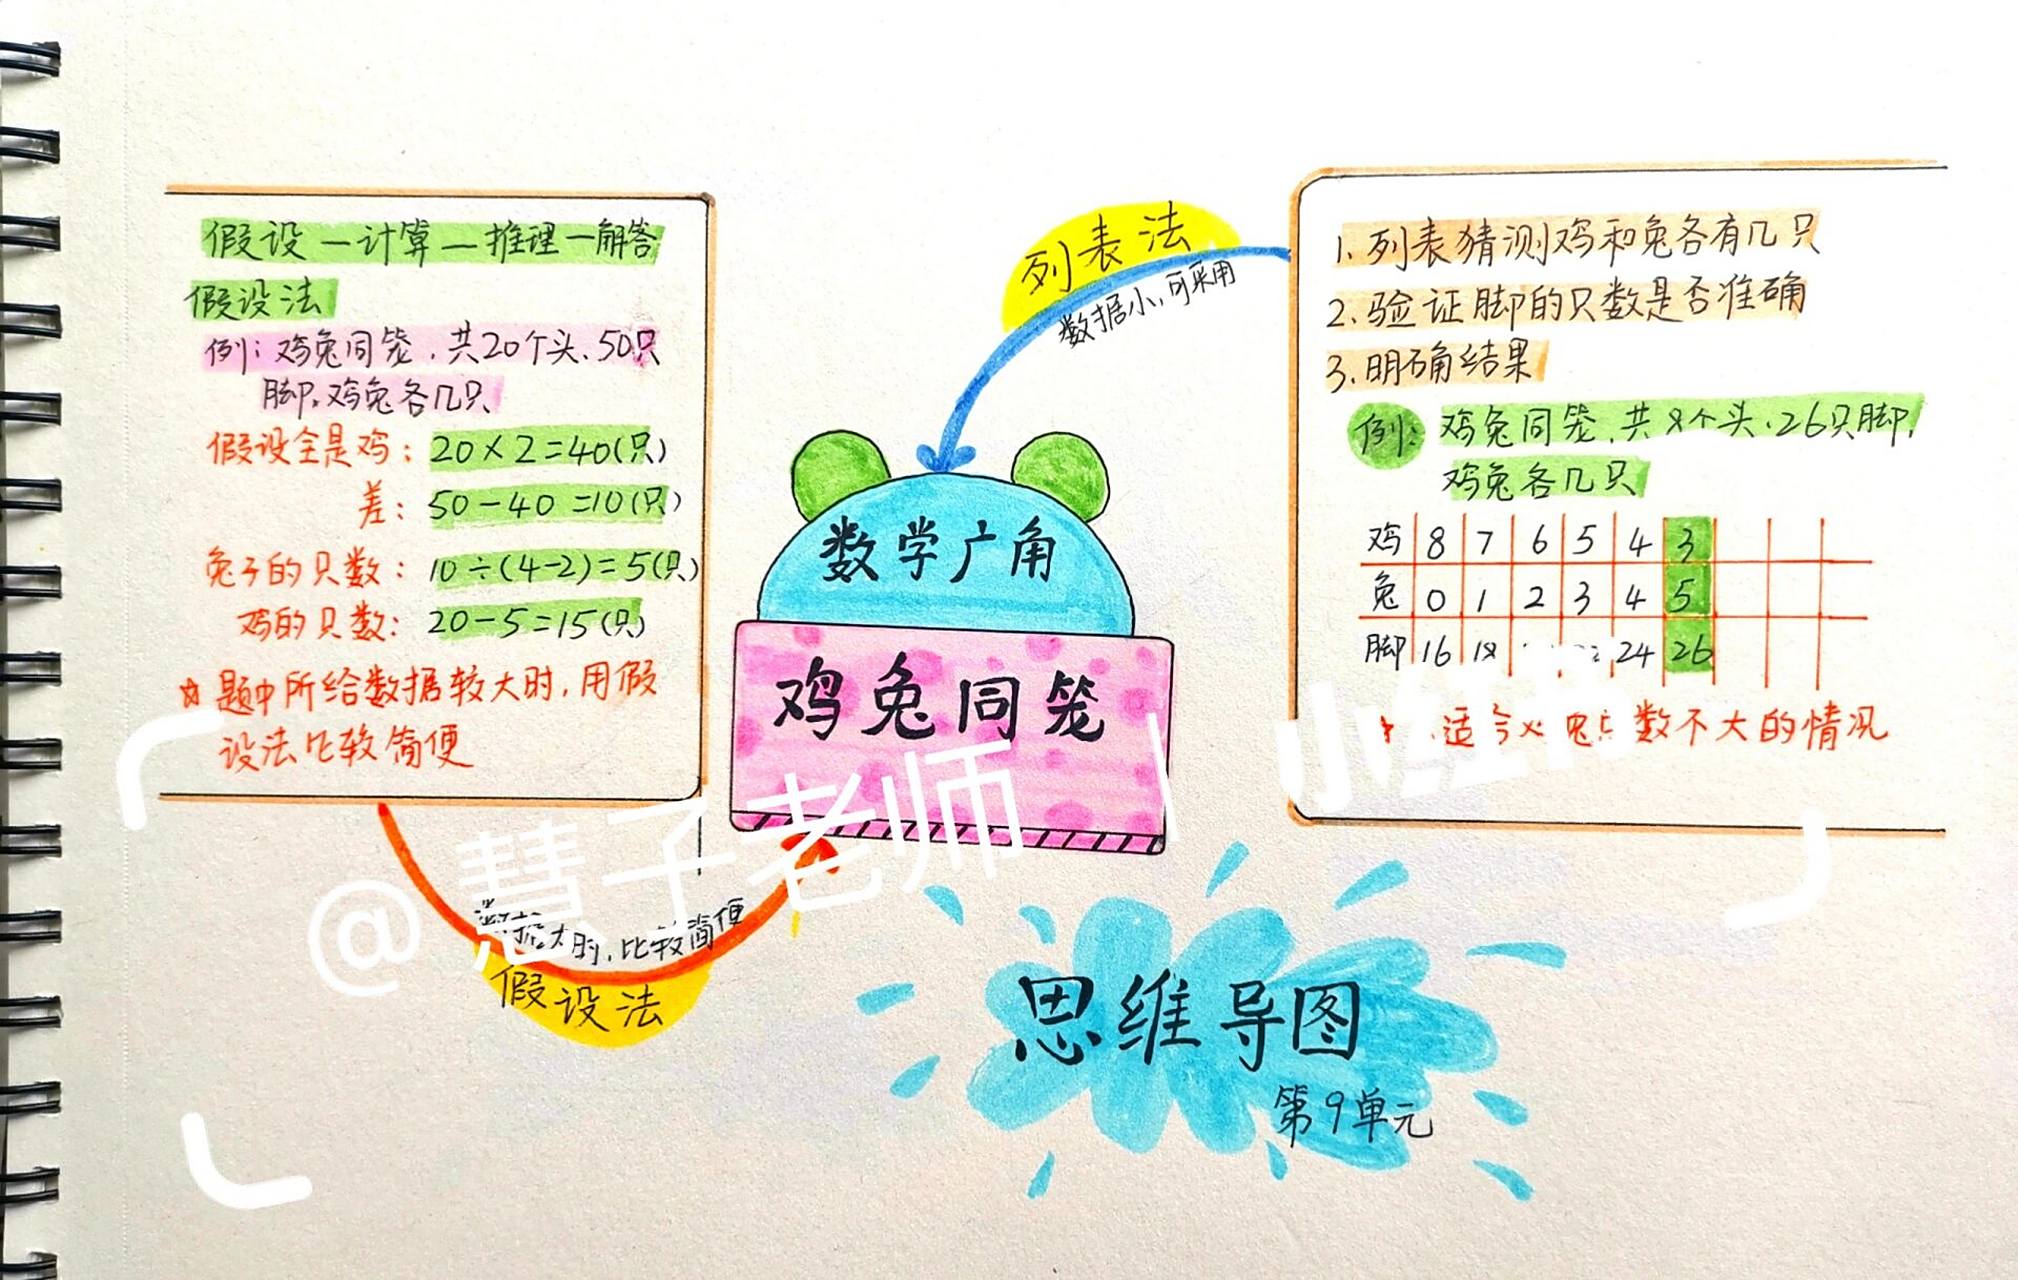 假设—计算—推理—解答
假设法
例：鸡兔同笼，共20个头，50只
脚，鸡兔各几只
假设全是鸡：20×2=40(只)
差：50-40=10(只)
兔子的只数：10÷(4-2)=5(只)
鸡的只数：20-5=15(只)
☆题中所给数据较大时，用假
设法比较简便
大时，比较简便
假设法
列表法
数据小，可采用
数学广角
鸡兔同笼
1.列表猜测鸡和兔各有几只
2.验证脚的只数是否准确
3.明确结果
例：鸡兔同笼，共8个头，26只脚，
鸡兔各几只
鸡 8 7 6 5 4 3
兔 0 1 2 3 4 5
脚 16 18 24 26
适 数不大的情况
思维导图
第9单元
@慧子老师